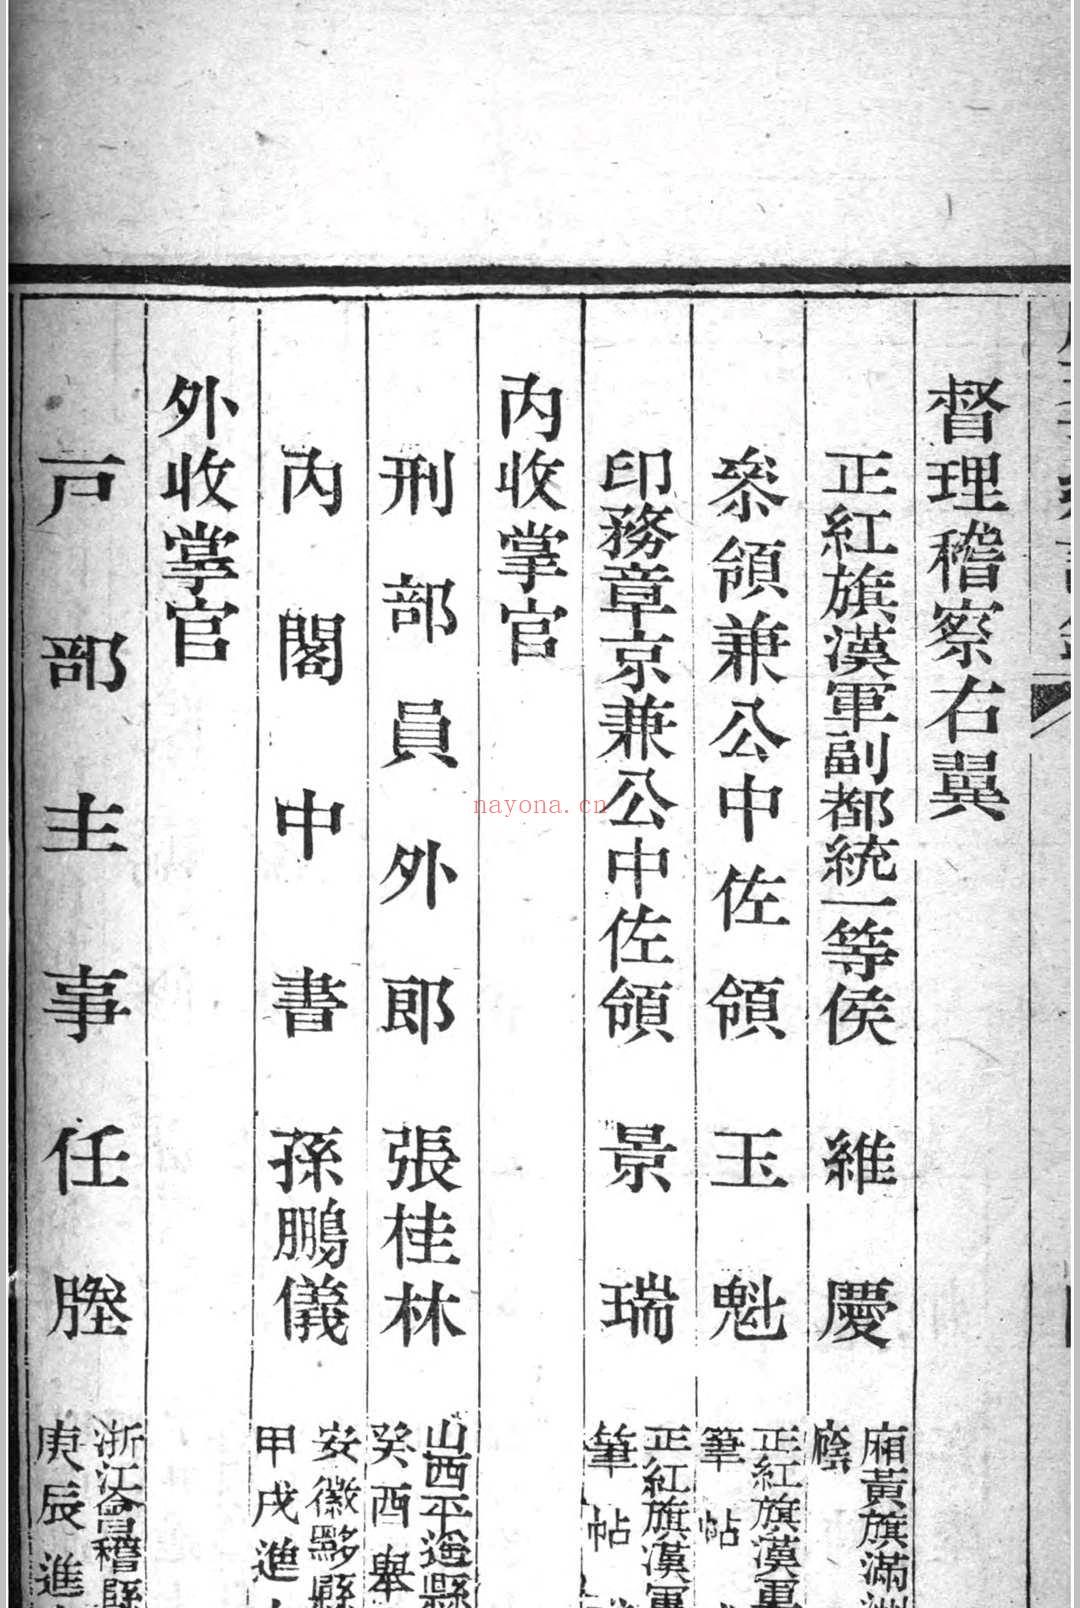 督理稽察右翼
正紅旗漢軍副都統一等侯 維慶 廂黃旗滿
廕
叅領兼公中佐領 玉魁 正紅旗漢軍
筆帖
印務章京兼公中佐領 景瑞 正紅旗漢軍
筆帖
內收掌官
刑部員外郎 張桂林 山西平遙縣
癸酉舉
內閣中書 孫鵬儀 安徽黟縣
甲戌進
外收掌官
戶部主事 任塍 浙江會稽縣
庚辰進
nayona.cn